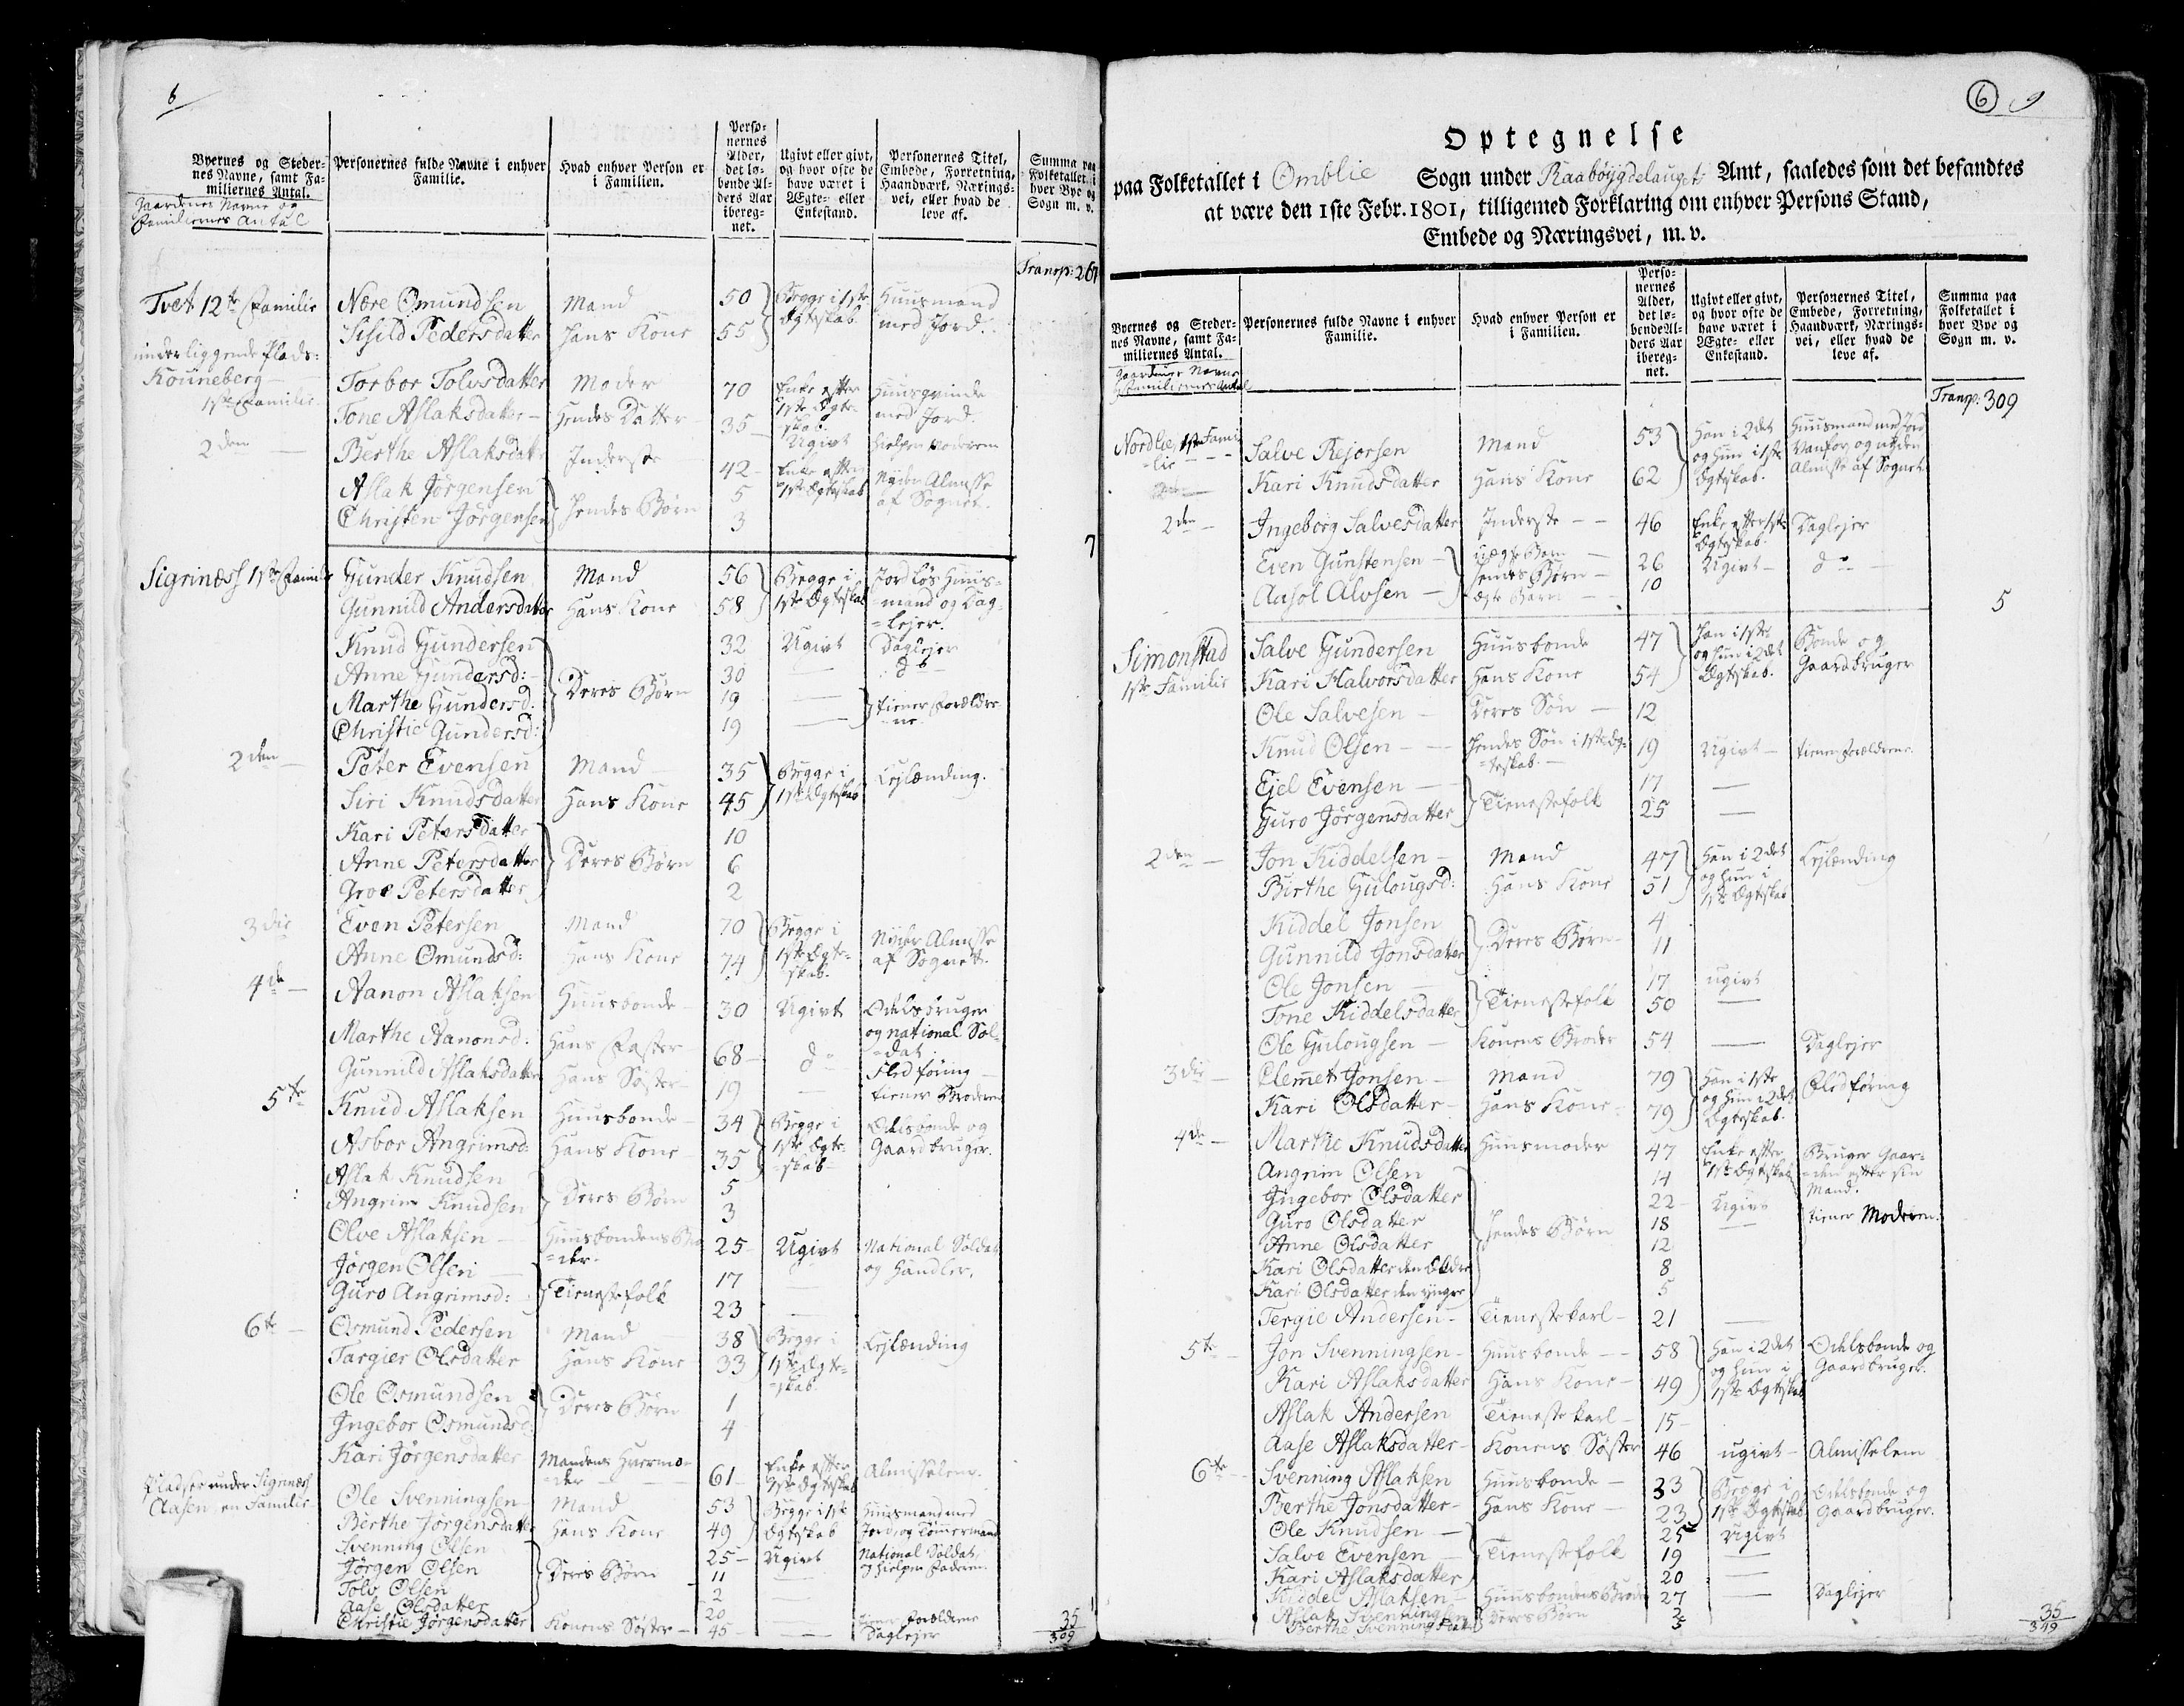 6
Byernes og Steder- Personernes fulde Navne i enhver Hvad enhver Person er Perso- Ugivt eller givt, Personernes Titel, Summa paa
nes Navne, samt Fa- Familie. i Familien. nernes og hvor ofte de Embede, Forretning, Folketallet i
miliernes Antal. Alder, have været i Haandværk, Nærings- hver Bye og
Gaardenes Navne og det lø- Ægte- eller vei, eller hvad de Sogn m. v.
Familiernes Antal bende Al- Enkestand. leve af.
ders Aar
ibereg-
net.
Transp: 267
Tvet 12te Familie Nere Omundsen Mand 50 Begge i 1ste Huusmand
Sisild Pedersdatter Hans Kone 55 Ægteskab. med Jord.
underliggende Plads:
Kouneberg Torbor Tolvsdatter Moder 70 Enke efter Huusqvinde
1ste Familie Tone Aslaksdatter Hendes Datter 35 1ste Ægteskab. Ugivt med Jord. hielper Moderen
2den Berthe Aslaksdatter Inderste 42 Enke efter 1ste Ægteskab Nyder Almisse af Sognet.
Aslak Jørgensen Hendes Børn 5
Christen Jørgensen 3
7
Sigrinæss 1ste Familie Gunder Knudsen Mand 56 Begge i Jordløs Huus-
Gunnild Andersdatter Hans Kone 58 1ste Ægteskab =mand og Dag-
=lejer.
Knud Gundersen 32 Ugivt Daglejer
Anne Gundersd: 30 do
Marthe Gundersd: Deres Børn 19 tiener Forældre
Christie Gundersd: 19 =ne.
2den Peter Evensen Mand 35 Begge i Lejlænding.
Siri Knudsdatter Hans Kone 45 1ste Ægteskab
Kari Petersdatter 10
Anne Petersdatter Deres Børn 6
Groe Petersdatter 2
3die Even Petersen Mand 70 Begge i Nyder Almisse
Anne Omundsd: Hans Kone 74 1ste Ægteskab. af Sognet
4de Aanon Aslaksen Huusbonde 30 Ugivt Odelsbruger
og national Sol-
Marthe Aanonsd: Hans Faster 68 do =dat
Fledføring
Gunnild Aslaksdatter Hans Søster 19 tiener Broderen
5te Knud Aslaksen Huusbonde 34 Begge i Odelsbonde og
Asbor Angrimsd: Hans Kone 35 1ste Ægteskab Gaardbruger.
Aslak Knudsen 5
Angrim Knudsen Deres Børn 3
Olve Aslaksen Huusbondens Broder. 25 Ugivt National Soldat
Jørgen Olsen 17 og Handler.
Guro Angrimsd: Tienestefolk 23
6te Osmund Pedersen Mand 38 Begge i Lejlænding
Targier Olsdatter Hans Kone 33 1ste Ægteskab.
Ole Osmundsen Deres Børn 1
Ingebor Osmundsd: 4
Kari Jørgensdatter Mandens Huermoder 61 Enke efter 1ste Ægteskab Almisselem.
Pladser under Sigrinæs
Aasen en Familie Ole Svenningsen Mand 53 Begge i 1ste Huusmand med
Berthe Jørgensdatter Hans Kone 49 Ægteskab Jord og Tømmermand
Svenning Olsen 25 Ugivt National Soldat,
Jørgen Olsen Deres Børn 11 hielper Faderen
Tolv Olsen 2
Aase Olsdatter 20 tiener Forældrene
Christie Jørgensdatter Konens Søster 45 Daglejer
35
309
6 9
Optegnelse
paa Folketallet i Omblie Sogn under Raabøygdelauget Amt, saaledes som det befandtes
at være den 1ste Febr. 1801, tilligemed Forklaring om enhver Persons Stand,
Embede og Næringsvei, m. v.
Byernes og Steder- Personernes fulde Navne i enhver Hvad enhver Person er Perso- Ugivt eller givt, Personernes Titel, Summa paa
nes Navne, samt Fa- Familie. i Familien. nernes og hvor ofte de Embede, Forretning, Folketallet i
miliernes Antal. Alder, have været i Haandværk, Nærings- hver Bye og
Gaardenes Navne det lø- Ægte- eller vei, eller hvad de Sogn m. v.
og Familiernes Antal bende Al- Enkestand. leve af.
ders Aar
ibereg-
net.
Transp: 309
Nordlie, 1ste Fami Salve Rejorsen Mand 53 Han i 2det Huusmand med Jord
=lie Kari Knudsdatter Hans Kone 62 og hun i 1ste Ægteskab. Vanfør og nyder Almisse af Sognet
2den Ingeborg Salvesdatter Inderste 46 Enke efter 1ste Ægteskab. Daglejer
Even Gunstensen uægte Barn 26 Ugivt do
Hendes Børn
Aasol Alvsen ægte Barn 10
5
Simonstad Salve Gundersen Huusbonde 47 Han i 1ste Bonde og
1ste Familie Kari Halvorsdatter Hans Kone 54 og hun i 2det Ægteskab. Gaardbruger
Ole Salvesen Deres Søn 12
Knud Olsen Hendes Søn i 1ste Æg- 19 Ugivt tiener Forældrene
=teskab.
Ejel Evensen 17
Guro Jørgensdatter Tienestefolk 25
2den Jon Kiddelsen Mand 47 Han i 2det Lejlænding
Birthe Gulougsd: Hans Kone 51 og hun i 1ste Ægteskab
Kiddel Jonsen 4
Gunnild Jonsdatter Deres Børn 11
Ole Jonsen 17 ugivt
Tone Kiddelsdatter Tienestefolk 50
Ole Gulougsen Konens Broder 54 Daglejer
3die Clemet Jonsen Mand 79 Han i 1ste Fledføring
Kari Olsdatter Hans Kone 79 og hun i 2det Ægteskab.
4de Marthe Knudsdatter Huusmoder 47 Enke efter Bruger Gaar-
Angrim Olsen 14 1ste Ægteskab =den efter sin
Ingebor Olsdatter 22 Ugivt Mand.
Guro Olsdatter Hendes Børn 18 tiener Moderen.
Anne Olsdatter 12
Kari Olsdatter den Eldre 8
Kari Olsdatter den yngre 5
Tergie Andersen Tienestekarl 21
5te Jon Svenningsen Huusbonde 58 Han i 2det Odelsbonde og
Kari Aslaksdatter Hans Kone 49 og hun i 1ste Ægteskab Gaardbruger.
Aslak Andersen Tienestekarl 15
Aase Aslaksdatter Konens Søster 46 ugivt Almisselem
6te Svenning Aslaksen Huusbonde 33 Begge i Odelsbonde og
Berthe Jonsdatter Hans Kone 23 1ste Ægteskab Gaardbruger.
Ole Knudsen 25 Ugivt
Salve Evensen Tienestefolk 19
Kari Aslaksdatter 20
Kiddel Aslaksen Huusbondens Broder 27 Daglejer
Aslak Svenningsen Deres Børn 2
Berthe Svenningsdatter 5
35
349